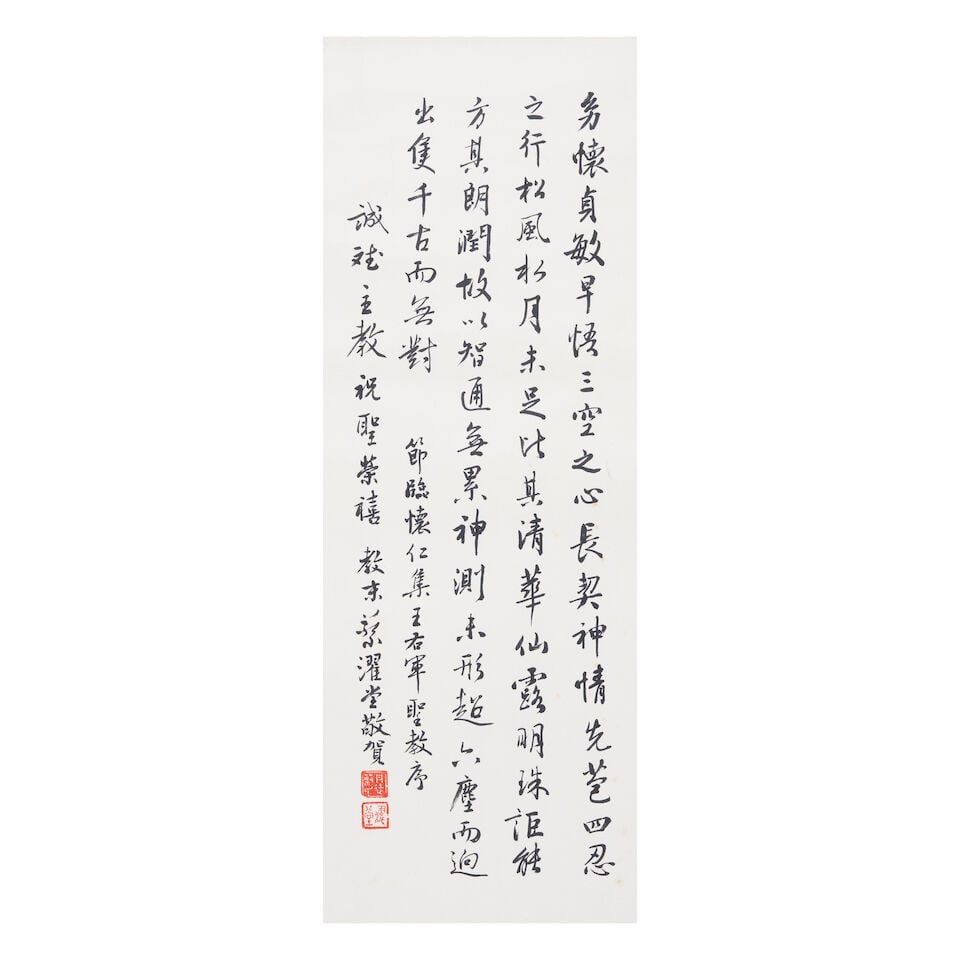 幼懷貞敏早悟三空之心長契神情先苞四忍
之行松風水月未足比其清華仙露明珠詎能
方其朗潤故以智通無累神測未形超六塵而迥
出隻千古而無對
節臨懷仁集王右軍聖教序
誠斌主教祝聖榮禧
教末蔡濯堂敬賀